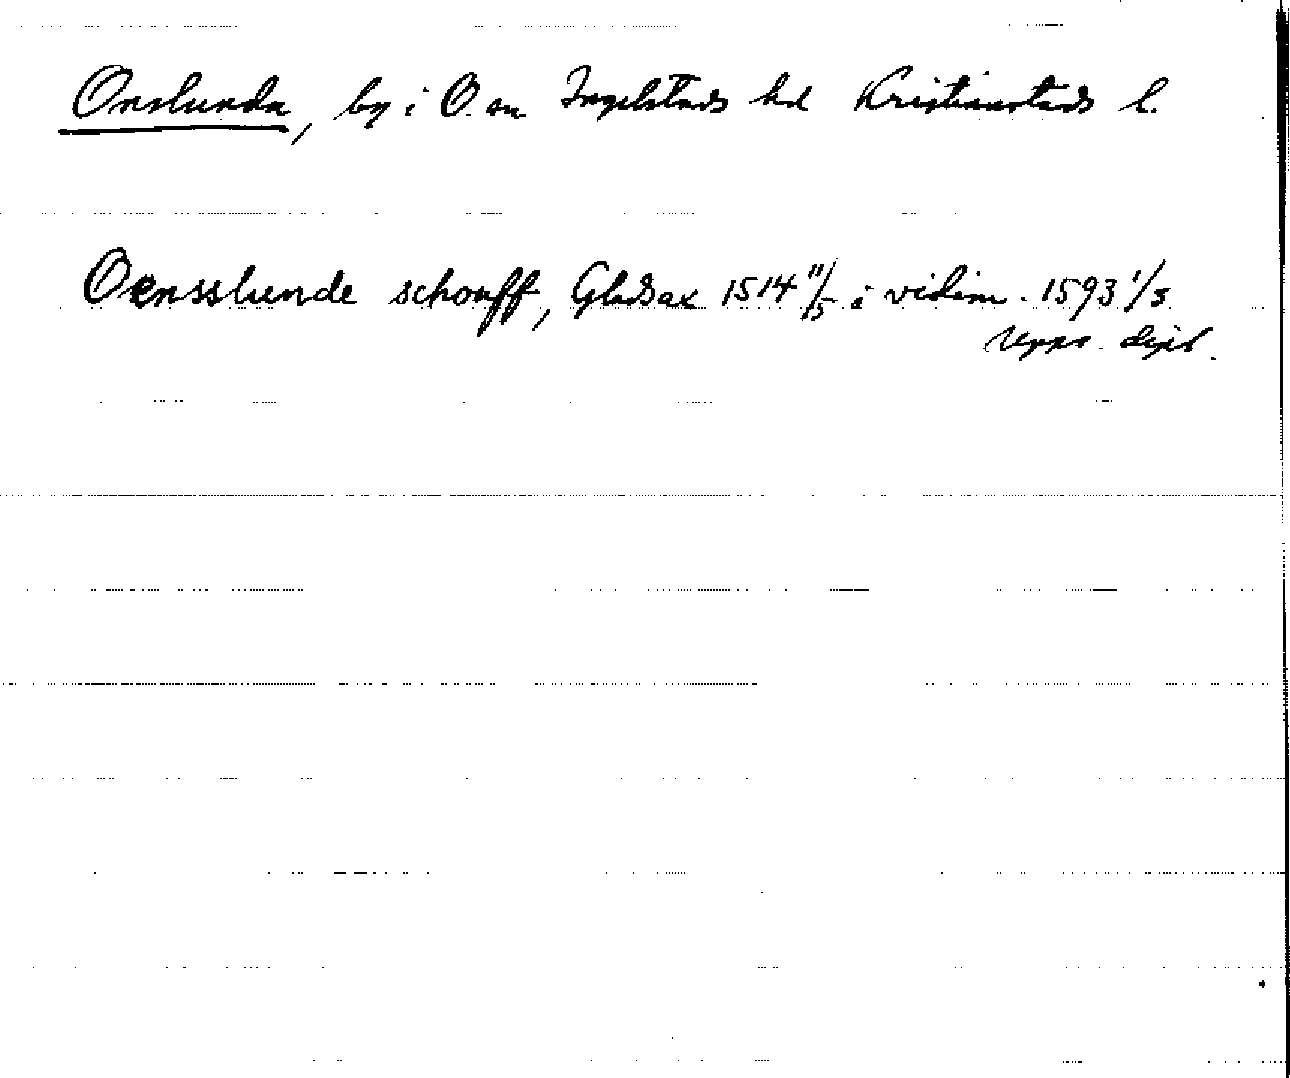 Onslunda, by i O. sn Ingelstads hd Kristianstads l.
Oensslunde schouff, Gladsax 1514 11/5 i vidim. 1593 1/3
Upps. dipl.